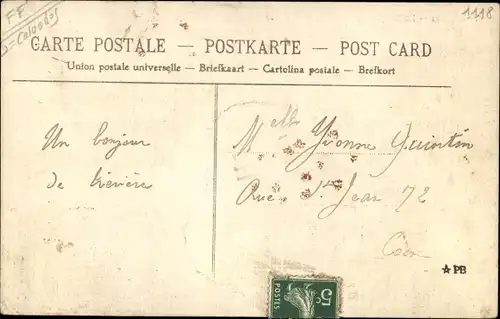 FF
1118
CARTE POSTALE — POSTKARTE — POST CARD
Union postale universelle — Briefkaart — Cartolina postale — Brefkort
Un bonjour
de
Melle Yvonne Quintin
Rue St Jean 72
Caen
PB
5c
POSTES